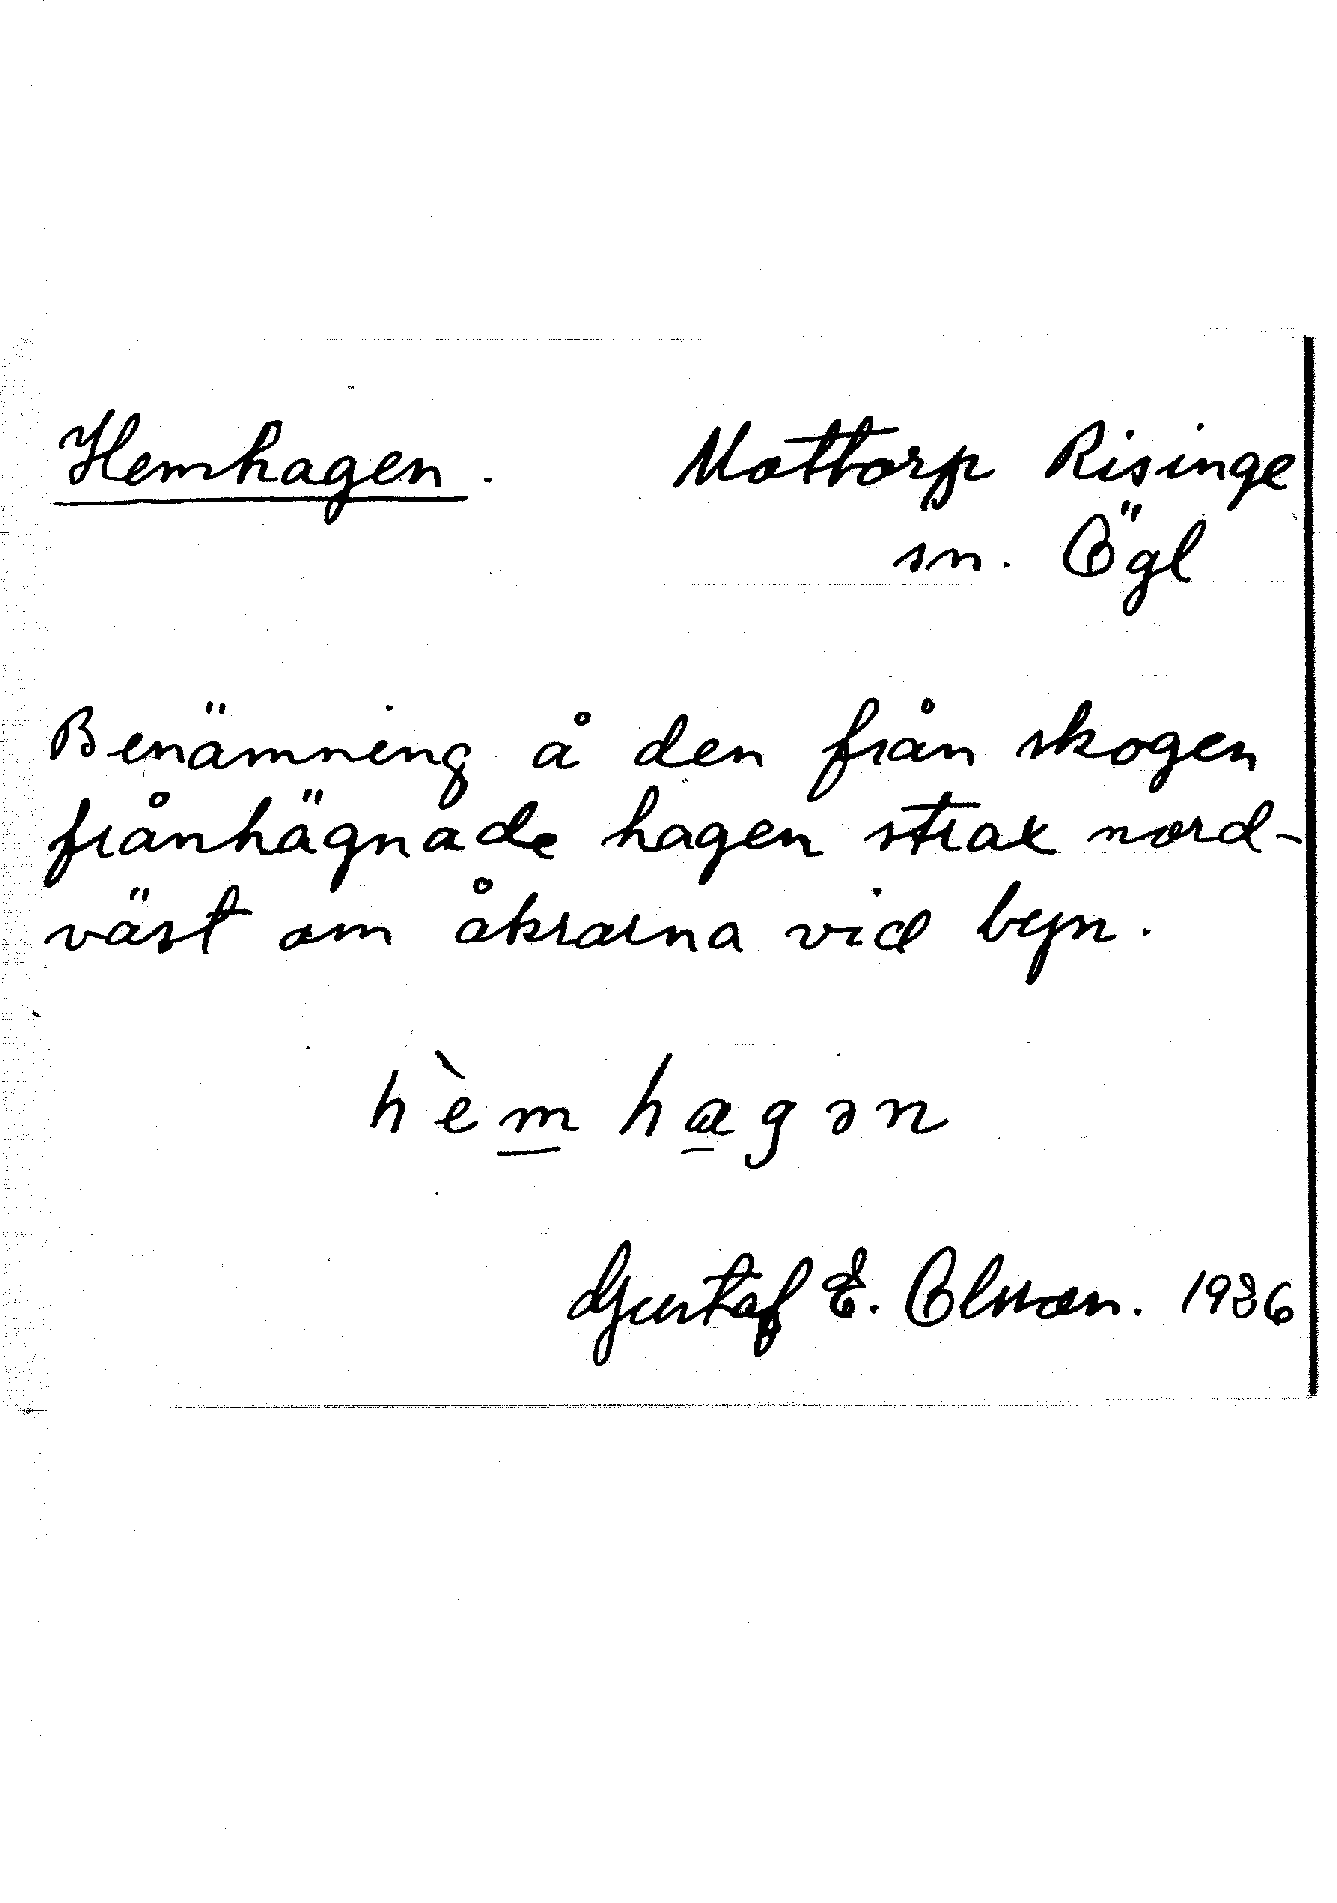 Hemhagen. Mottorp Risinge
sn. Ögl
Benämning å den från skogen
frånhägnade hagen strax nord-
väst om åkrarna vid byn.
hèm hagən
Gustaf E. Olsson. 1936